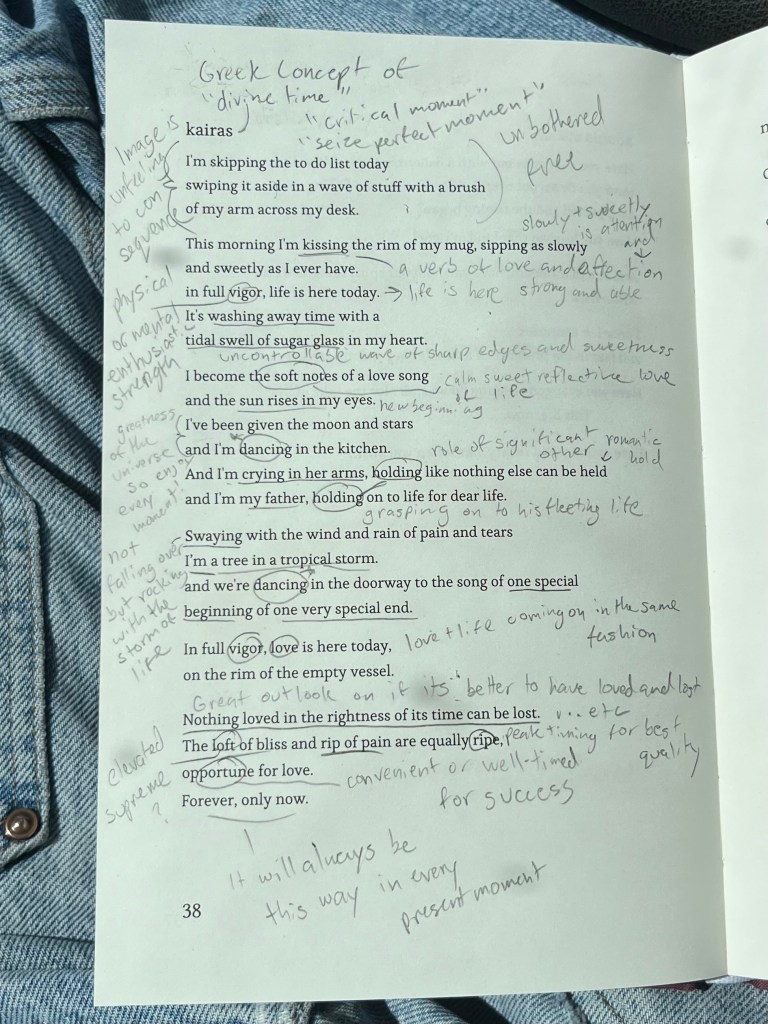 Greek Concept of
"divine time"
"critical moment"
"seize perfect moment"
unbothered
free
kairas
Image is
unfeeling
to con
sequence
I'm skipping the to do list today
swiping it aside in a wave of stuff with a brush
of my arm across my desk.
slowly + sweetly
is attention
and
This morning I'm kissing the rim of my mug, sipping as slowly
and sweetly as I ever have.
a verb of love and affection
in full vigor, life is here today.
→ life is here strong and able
physical
or mental
enthusiastic
strength
It's washing away time with a
tidal swell of sugar glass in my heart.
uncontrollable wave of sharp edges and sweetness
I become the soft notes of a love song
calm sweet reflective love
of life
and the sun rises in my eyes.
new beginning
greatness
of the
universe
so enjoy
every
moment!
I've been given the moon and stars
and I'm dancing in the kitchen.
role of significant romantic
other
hold
And I'm crying in her arms, holding like nothing else can be held
and I'm my father, holding on to life for dear life.
grasping on to his fleeting life
not
falling over
but rocking
with the
storm of
life
Swaying with the wind and rain of pain and tears
I'm a tree in a tropical storm.
and we're dancing in the doorway to the song of one special
beginning of one very special end.
In full vigor, love is here today,
love + life coming on in the same
fashion
on the rim of the empty vessel.
Great outlook on if its "better to have loved and lost
"... etc
Nothing loved in the rightness of its time can be lost.
The loft of bliss and rip of pain are equally ripe,
peak timing for best
quality
elevated
supreme
?
opportune for love.
convenient or well-timed
for success
Forever, only now.
It will always be
this way in every
present moment
38